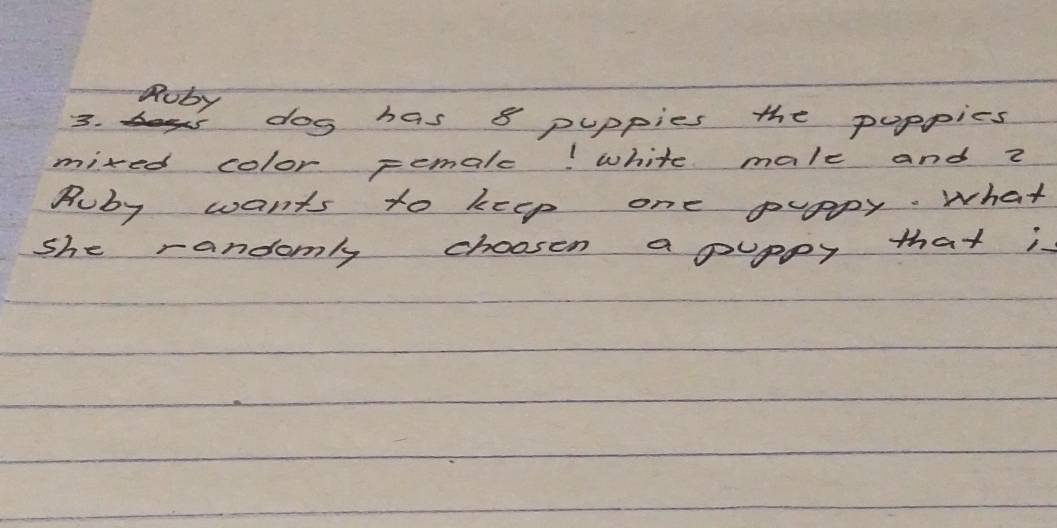 Ruby
3. dog has 8 puppies the puppies
mixed color Female ! white male and 2
Ruby wants to keep one puppy. What
she randomly choosen a puppy that is